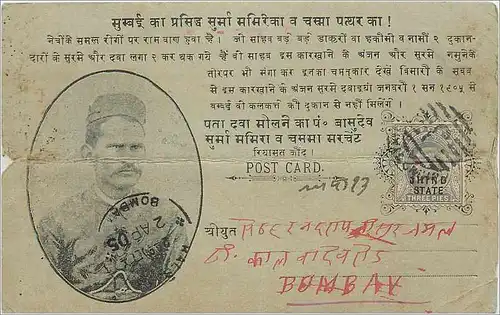 सुम्बई का प्रसिद्ध सुर्मा ममिरिका व चस्मा पत्थर का!
नेत्रोंके समल रोगों पर राम बाण हुवा है। जो साहब बड़े बड़े डाकरों वा हकीमों व नामीं २ दुकान-
दारों के सुरमे और दवा लगा २ कर थक गये हैं वो साहब इस कारखाने के अंजन और सुरमे नमुनेके
तोरपर भी मंगा कर इनका चमत्कार देखें बिमारी के सबब
से इस कारखाने के अंजन सुरमे दवाइयां जनवरी १ सन १९०५ से
बम्बई वो कलकत्ते की दुकान से नहीं मिलेंगे।
पता दवा मोलने का पं० बासुदेव
सुर्मा ममिरा व चममा मरचेंट
रियासत जींद।
POST CARD.
JHIND
STATE
THREE PIES
BOMBAY
2 AP 05
श्रीयुत
कालबादेवी रोड
BOMBAY